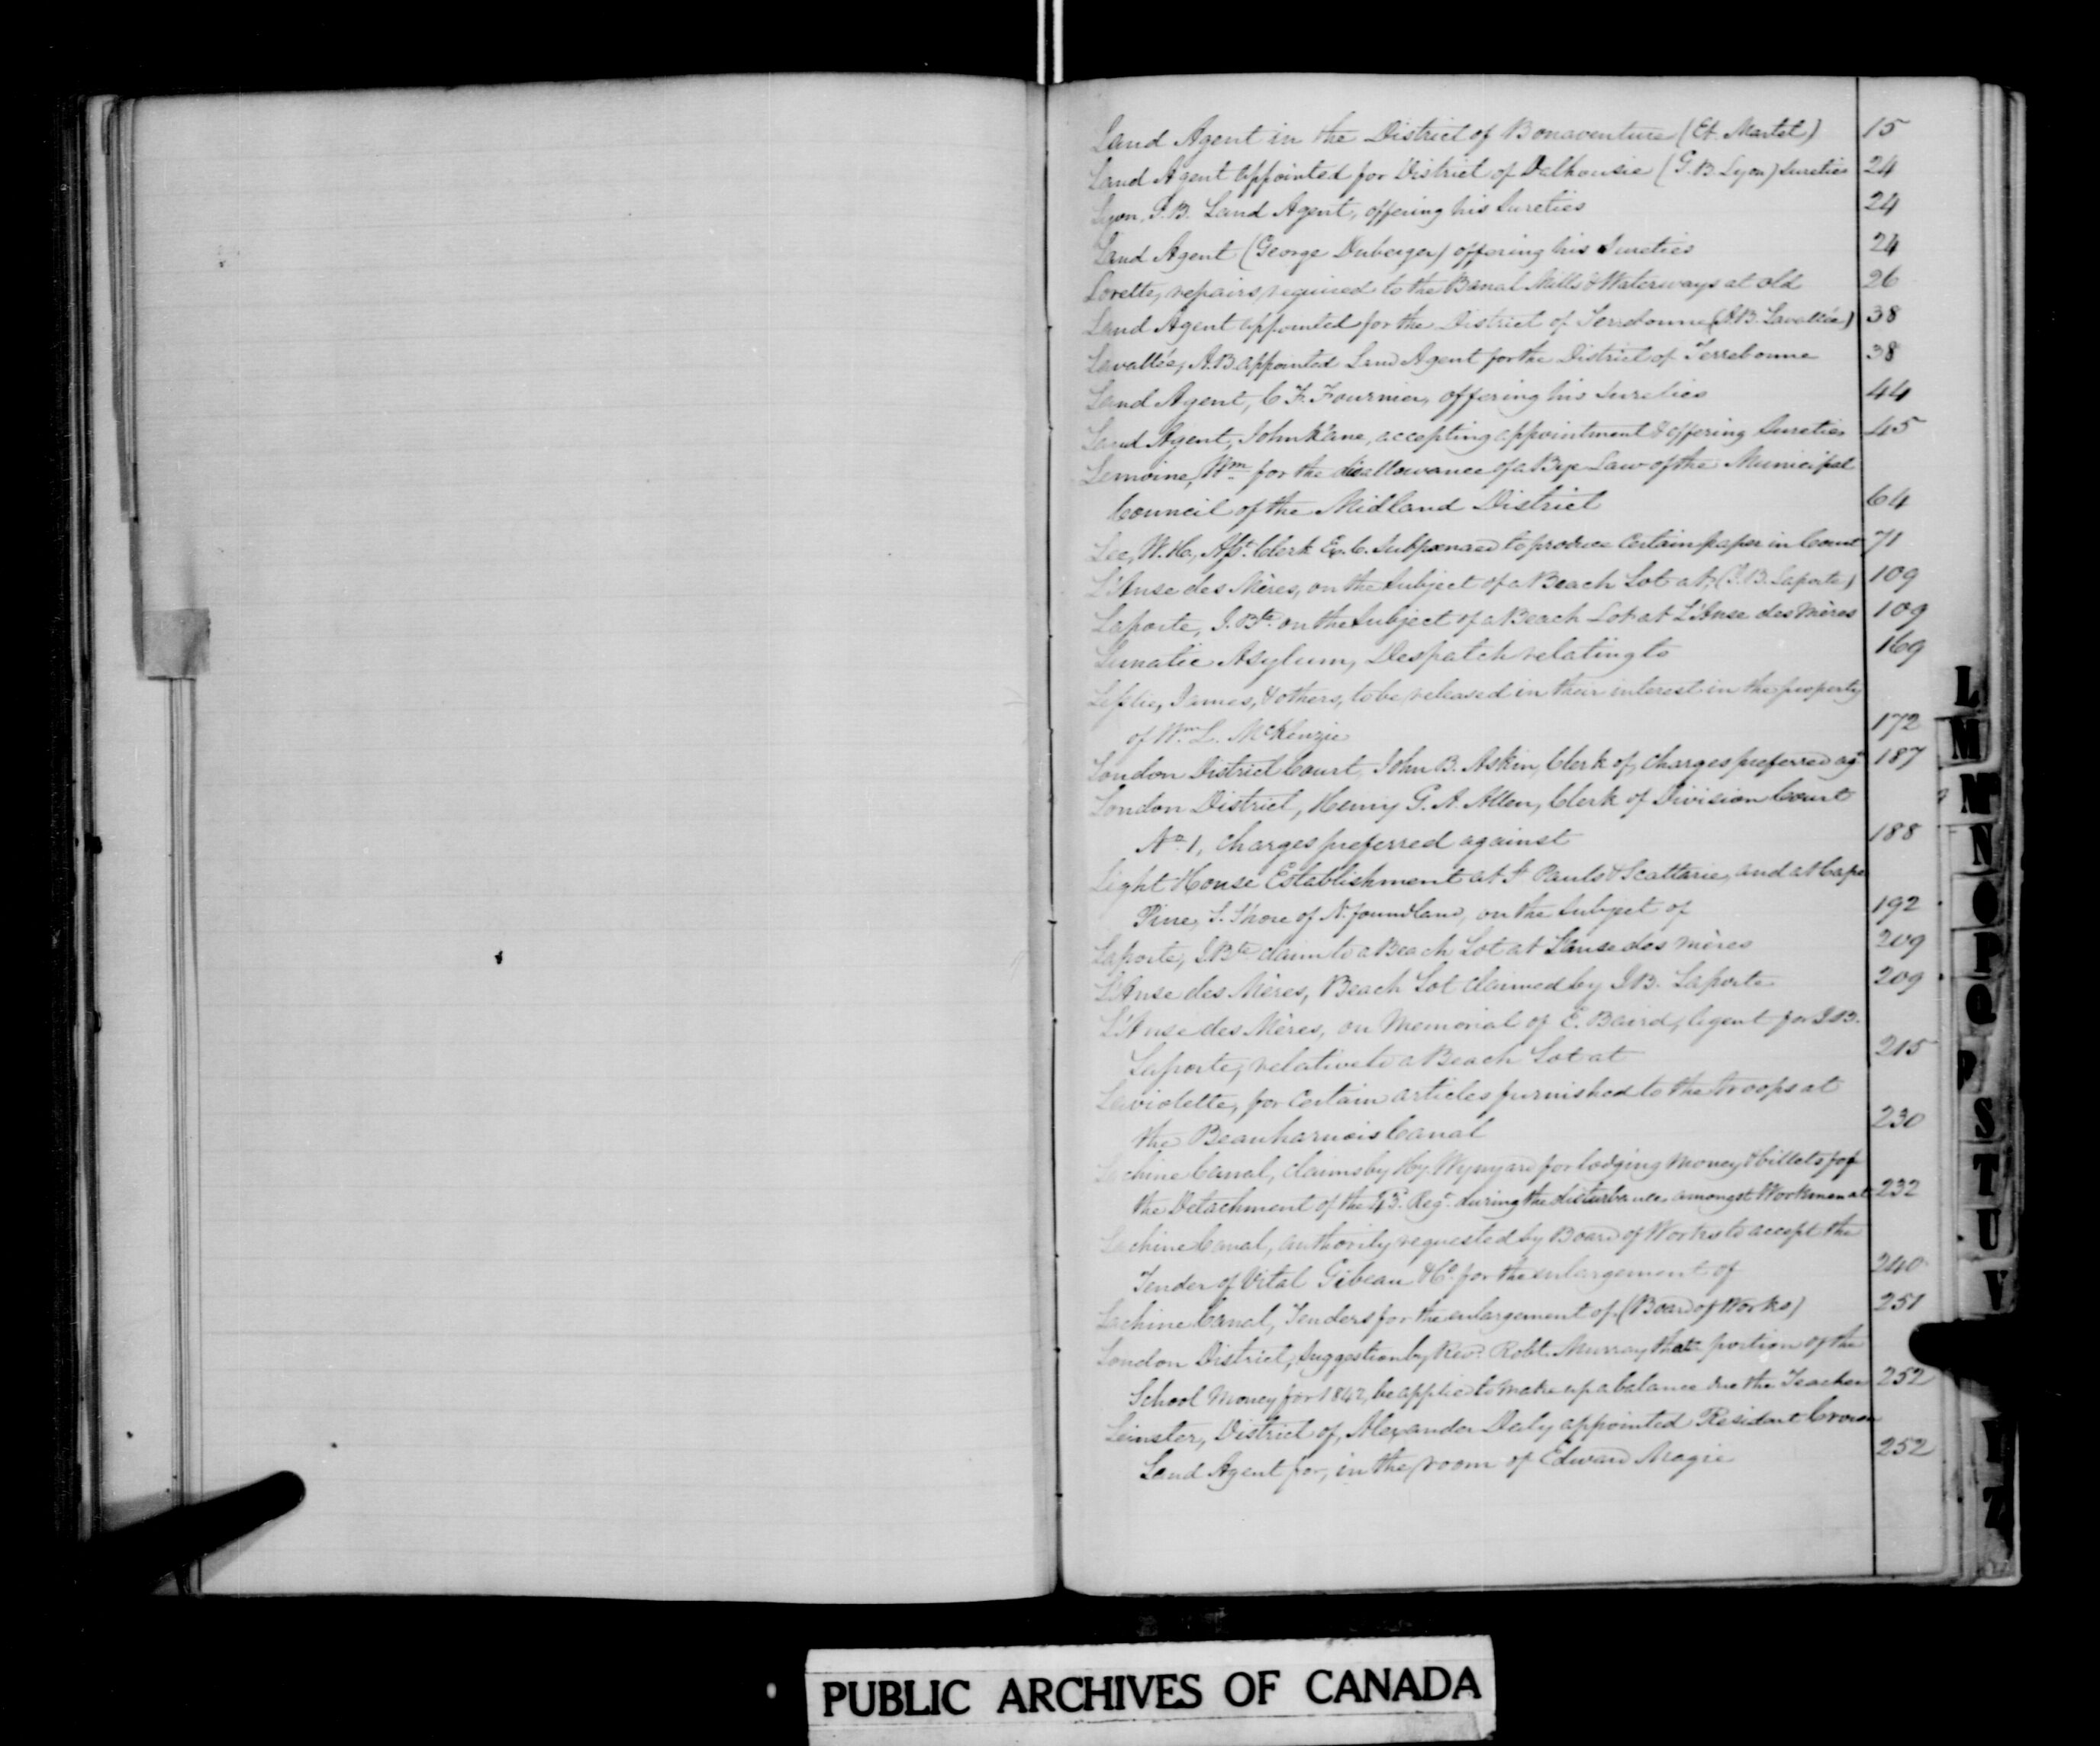 Land Agent in the District of Bonaventure (Et. Martel) 15
Land Agent appointed for District of Dalhousie (G.B. Lyon) Sureties 24
Lyon, G.B. Land Agent, offering his Sureties 24
Land Agent (George Duberger) offering his Sureties 24
Lorette, repairs required to the Banal Mills & Waterways at old 26
Land Agent appointed for the District of Terrebonne (A.B. Lavallée) 38
Lavallée, A.B. appointed Land Agent for the District of Terrebonne 38
Land Agent, C. F. Fournier, offering his Sureties 44
Land Agent, John Kane, accepting appointment & offering Sureties 45
Lemoine, Wm. for the disallowance of a Bye Law of the Municipal
Council of the Midland District 64
Lee, W.H., Asst. Clerk Ex. C. Subpoenaed to produce Certain paper in Court 71
L'Anse des Mères, on the Subject of a Beach Lot at, (J.B. Laporte) 109
Laporte, J. Bte. on the Subject of a Beach Lot at L'Anse des Mères 109
Lunatic Asylum, Despatch relating to 169
Leslie, James, & others, to be released in their interest in the property
of Wm. L. McKenzie 172
London District Court, John B. Askin, Clerk of, Charges preferred agt. 187
London District, Henry G. A. Allen, Clerk of Division Court
No. 1, charges preferred against 188
Light House Establishment at St Pauls & Scattarie, and at Cape
Pine, S. Shore of N.foundland, on the Subject of 192
Laporte, J Bte claim to a Beach Lot at L'anse des Mères 209
L'Anse des Mères, Beach Lot claimed by J.B. Laporte 209
L'Anse des Mères, on Memorial of E. Baird, Agent for J.B.
Laporte, relative to a Beach Lot at 215
Laviolette, for Certain articles furnished to the troops at
the Beauharnois Canal 230
Lachine Canal, claims by Hy. Wynyard for lodging money & billets for
the Detachment of the 43. Regt. during the disturbance amongst Workmen at 232
Lachine Canal, authority requested by Board of Works to accept the
Tender of Vital Gibeau & Co. for the enlargement of 240
Lachine Canal, Tenders for the enlargement of (Board of Works) 251
London District, Suggestion by Revd. Robt. Murray that a portion of the
School Money for 1842, be applied to make up a balance due the Teachers 252
Leinster, District of, Alexander Daly appointed Resident Crown
Land Agent for, in the room of Edward Magie 252
L
M
Mc
N
O
P
Q
R
S
T
U
V
PUBLIC ARCHIVES OF CANADA